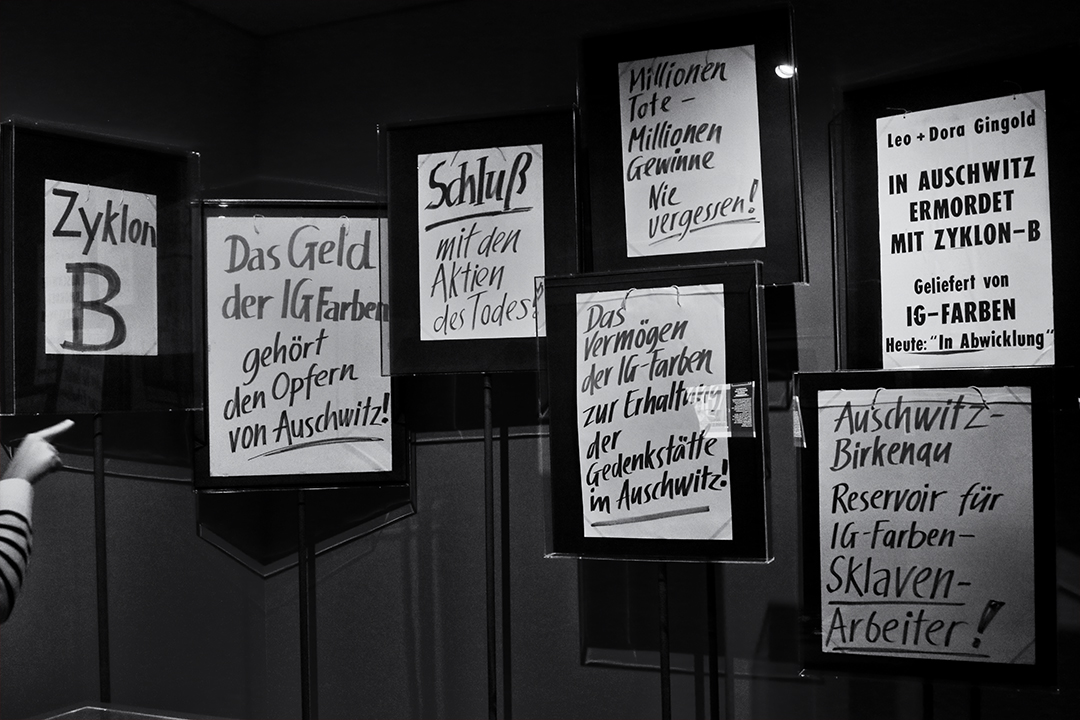 Zyklon
B
Das Geld
der IG Farben
gehört
den Opfern
von Auschwitz!
Schluß
mit den
Aktien
des Todes!
Millionen
Tote –
Millionen
Gewinne
Nie
vergessen!
Das
Vermögen
der IG-Farben
zur Erhaltung
der
Gedenkstätte
in Auschwitz!
Leo + Dora Gingold
IN AUSCHWITZ
ERMORDET
MIT ZYKLON-B
Geliefert von
IG-FARBEN
Heute: "In Abwicklung"
Auschwitz-
Birkenau
Reservoir für
IG-Farben-
Sklaven-
Arbeiter!